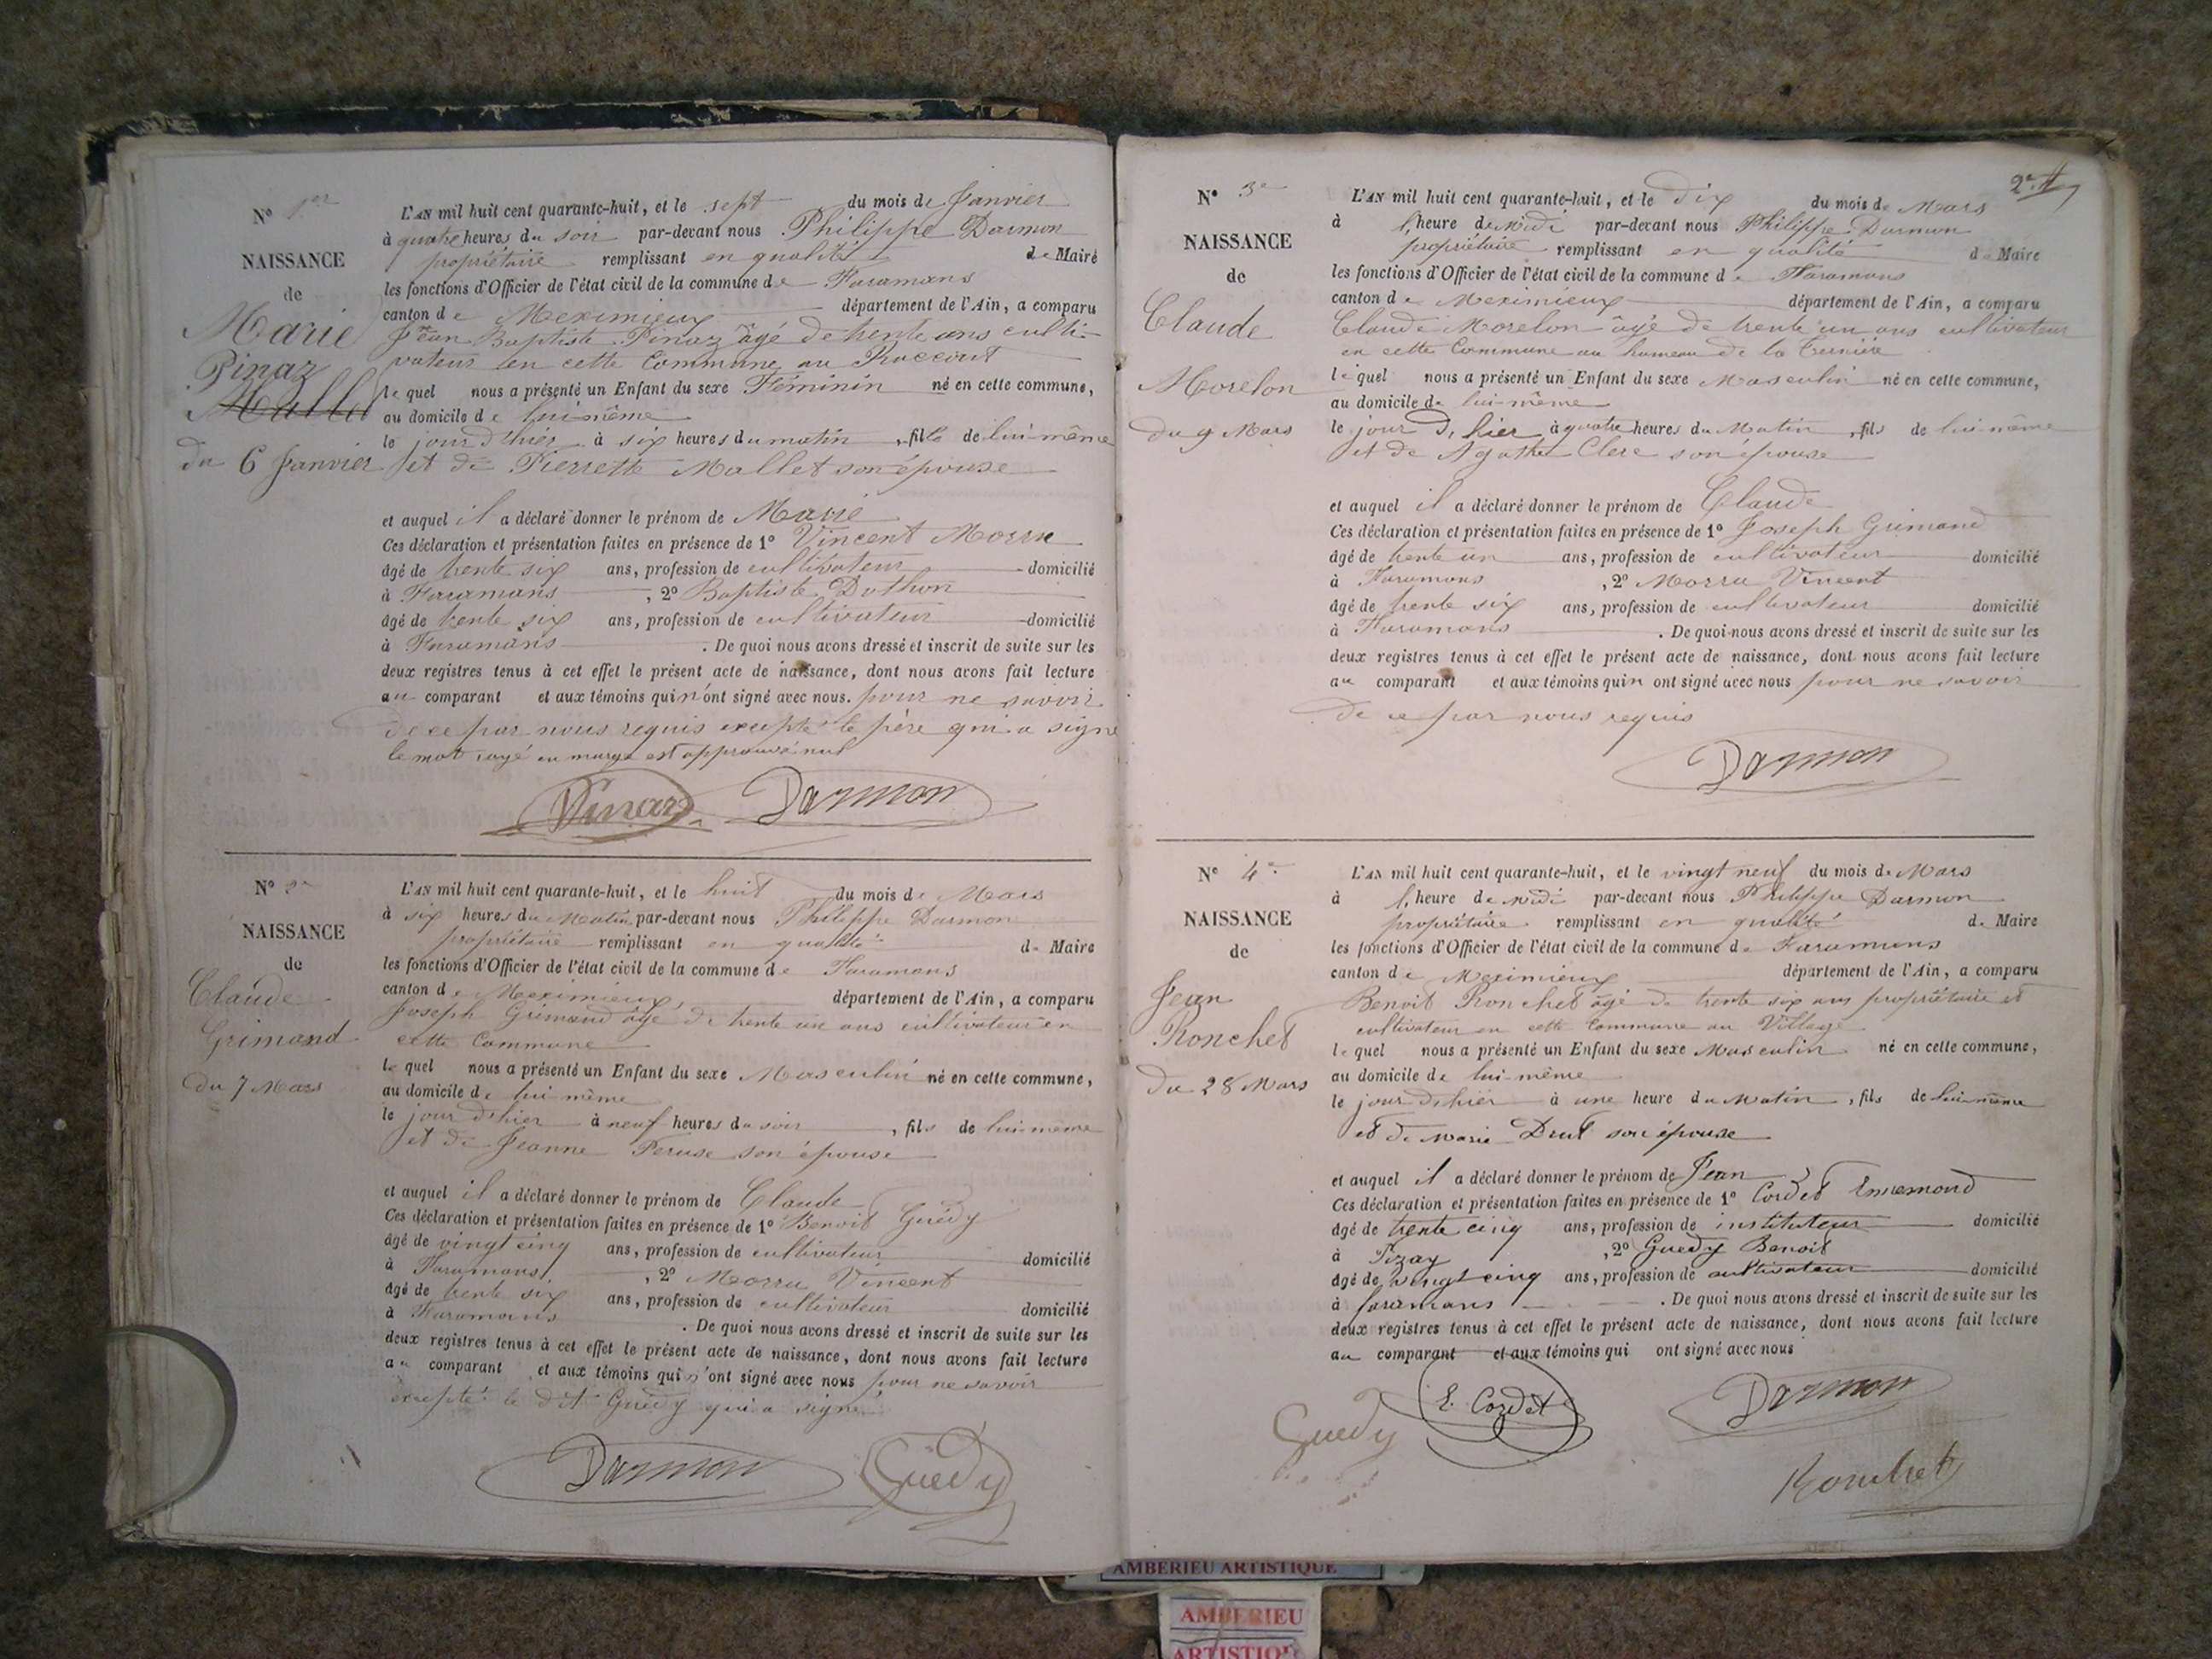 N° 1er
NAISSANCE
de
Marie
Pinaz
Mallet
du 6 Janvier
L'AN mil huit cent quarante-huit, et le sept du mois de Janvier
à quatre heures du soir par-devant nous Philippe Darmon
propriétaire remplissant en qualité de Maire
les fonctions d'Officier de l'état civil de la commune de Faramans
canton de Meximieux département de l'Ain, a comparu
Jean Baptiste Pinaz âgé de trente ans culti-
vateur en cette Commune au
le quel nous a présenté un Enfant du sexe Féminin né en cette commune,
au domicile de lui-même
le jour d'hier à six heures du matin, fille de lui-même
et de Pierrette Mallet son épouse
et auquel il a déclaré donner le prénom de Marie
Ces déclaration et présentation faites en présence de 1° Vincent Morru
âgé de trente six ans, profession de cultivateur domicilié
à Faramans, 2° Baptiste Dothon
âgé de trente six ans, profession de cultivateur domicilié
à Faramans. De quoi nous avons dressé et inscrit de suite sur les
deux registres tenus à cet effet le présent acte de naissance, dont nous avons fait lecture
au comparant et aux témoins qui n'ont signé avec nous. pour ne savoir
de ce par nous requis excepté le père qui a signé
le mot rayé en marge est approuvé nul
Pinaz Darmon
N° 2e
NAISSANCE
de
Claude
Grimand
du 7 Mars
L'AN mil huit cent quarante-huit, et le huit du mois de Mars
à six heures du Matin par-devant nous Philippe Darmon
propriétaire remplissant en qualité de Maire
les fonctions d'Officier de l'état civil de la commune de Faramans
canton de Meximieux, département de l'Ain, a comparu
Joseph Grimand âgé de trente un ans cultivateur en
cette Commune
le quel nous a présenté un Enfant du sexe Masculin né en cette commune,
au domicile de lui-même
le jour d'hier à neuf heures du soir, fils de lui-même
et de Jeanne Peruse son épouse
et auquel il a déclaré donner le prénom de Claude
Ces déclaration et présentation faites en présence de 1° Benoit Guédy
âgé de vingt cinq ans, profession de cultivateur domicilié
à Faramans, 2° Morru Vincent
âgé de trente six ans, profession de cultivateur domicilié
à Faramans. De quoi nous avons dressé et inscrit de suite sur les
deux registres tenus à cet effet le présent acte de naissance, dont nous avons fait lecture
au comparant et aux témoins qui n'ont signé avec nous pour ne savoir
excepté le dit Guédy qui a signé
Darmon Guédy
2e
N° 3e
NAISSANCE
de
Claude
Morelon
du 9 Mars
L'AN mil huit cent quarante-huit, et le dix du mois de Mars
à l'heure de midi par-devant nous Philippe Darmon
propriétaire remplissant en qualité de Maire
les fonctions d'Officier de l'état civil de la commune de Faramans
canton de Meximieux département de l'Ain, a comparu
Claude Morelon âgé de trente un ans cultivateur
en cette Commune au hameau de la
le quel nous a présenté un Enfant du sexe Masculin né en cette commune,
au domicile de lui-même
le jour d'hier à quatre heures du Matin, fils de lui-même
et de Agathe Clerc son épouse
et auquel il a déclaré donner le prénom de Claude
Ces déclaration et présentation faites en présence de 1° Joseph Grimand
âgé de trente un ans, profession de cultivateur domicilié
à Faramans, 2° Morru Vincent
âgé de trente six ans, profession de cultivateur domicilié
à Faramans. De quoi nous avons dressé et inscrit de suite sur les
deux registres tenus à cet effet le présent acte de naissance, dont nous avons fait lecture
au comparant et aux témoins qui n ont signé avec nous pour ne savoir
de ce par nous requis
Darmon
N° 4e
NAISSANCE
de
Jean
Ronchet
du 28 Mars
L'AN mil huit cent quarante-huit, et le vingt neuf du mois de Mars
à l'heure de midi par-devant nous Philippe Darmon
propriétaire remplissant en qualité de Maire
les fonctions d'Officier de l'état civil de la commune de Faramans
canton de Meximieux département de l'Ain, a comparu
Benoit Ronchet âgé de trente six ans propriétaire et
cultivateur en cette Commune au Village
le quel nous a présenté un Enfant du sexe Masculin né en cette commune,
au domicile de lui-même
le jour d'hier à une heure du Matin, fils de lui-même
et de Marie Drut son épouse
et auquel il a déclaré donner le prénom de Jean
Ces déclaration et présentation faites en présence de 1° Cordet Ennemond
âgé de trente cinq ans, profession de instituteur domicilié
à Pizay, 2° Guédy Benoit
âgé de vingt cinq ans, profession de cultivateur domicilié
à faramans. De quoi nous avons dressé et inscrit de suite sur les
deux registres tenus à cet effet le présent acte de naissance, dont nous avons fait lecture
au comparant et aux témoins qui ont signé avec nous
Guedy E. Cordet Darmon
Ronchet
AMBERIEU ARTISTIQUE
AMBERIEU
ARTISTIQUE